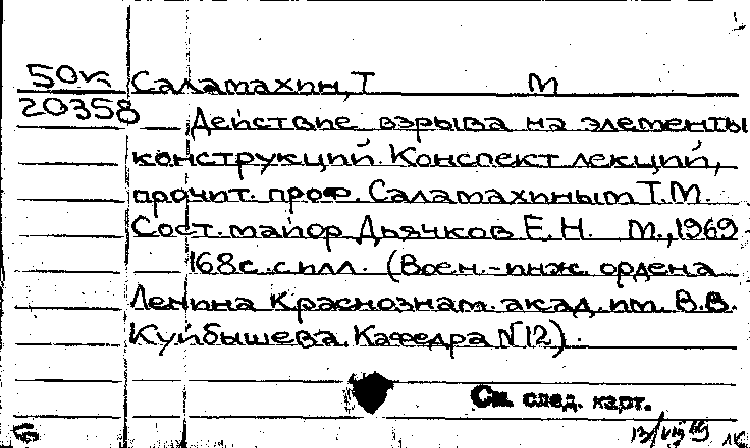 50к Саламахин, Т М
20358
Действие взрыва на элементы
конструкций. Конспект лекций,
прочит. проф. Саламахиным Т.М.
Сост. майор Дьячков Е.Н. М., 1969
168с. с илл. (Воен.-инж. ордена
Ленина Краснознам. акад. им. В.В.
Куйбышева. Кафедра N12).
См. след. карт.